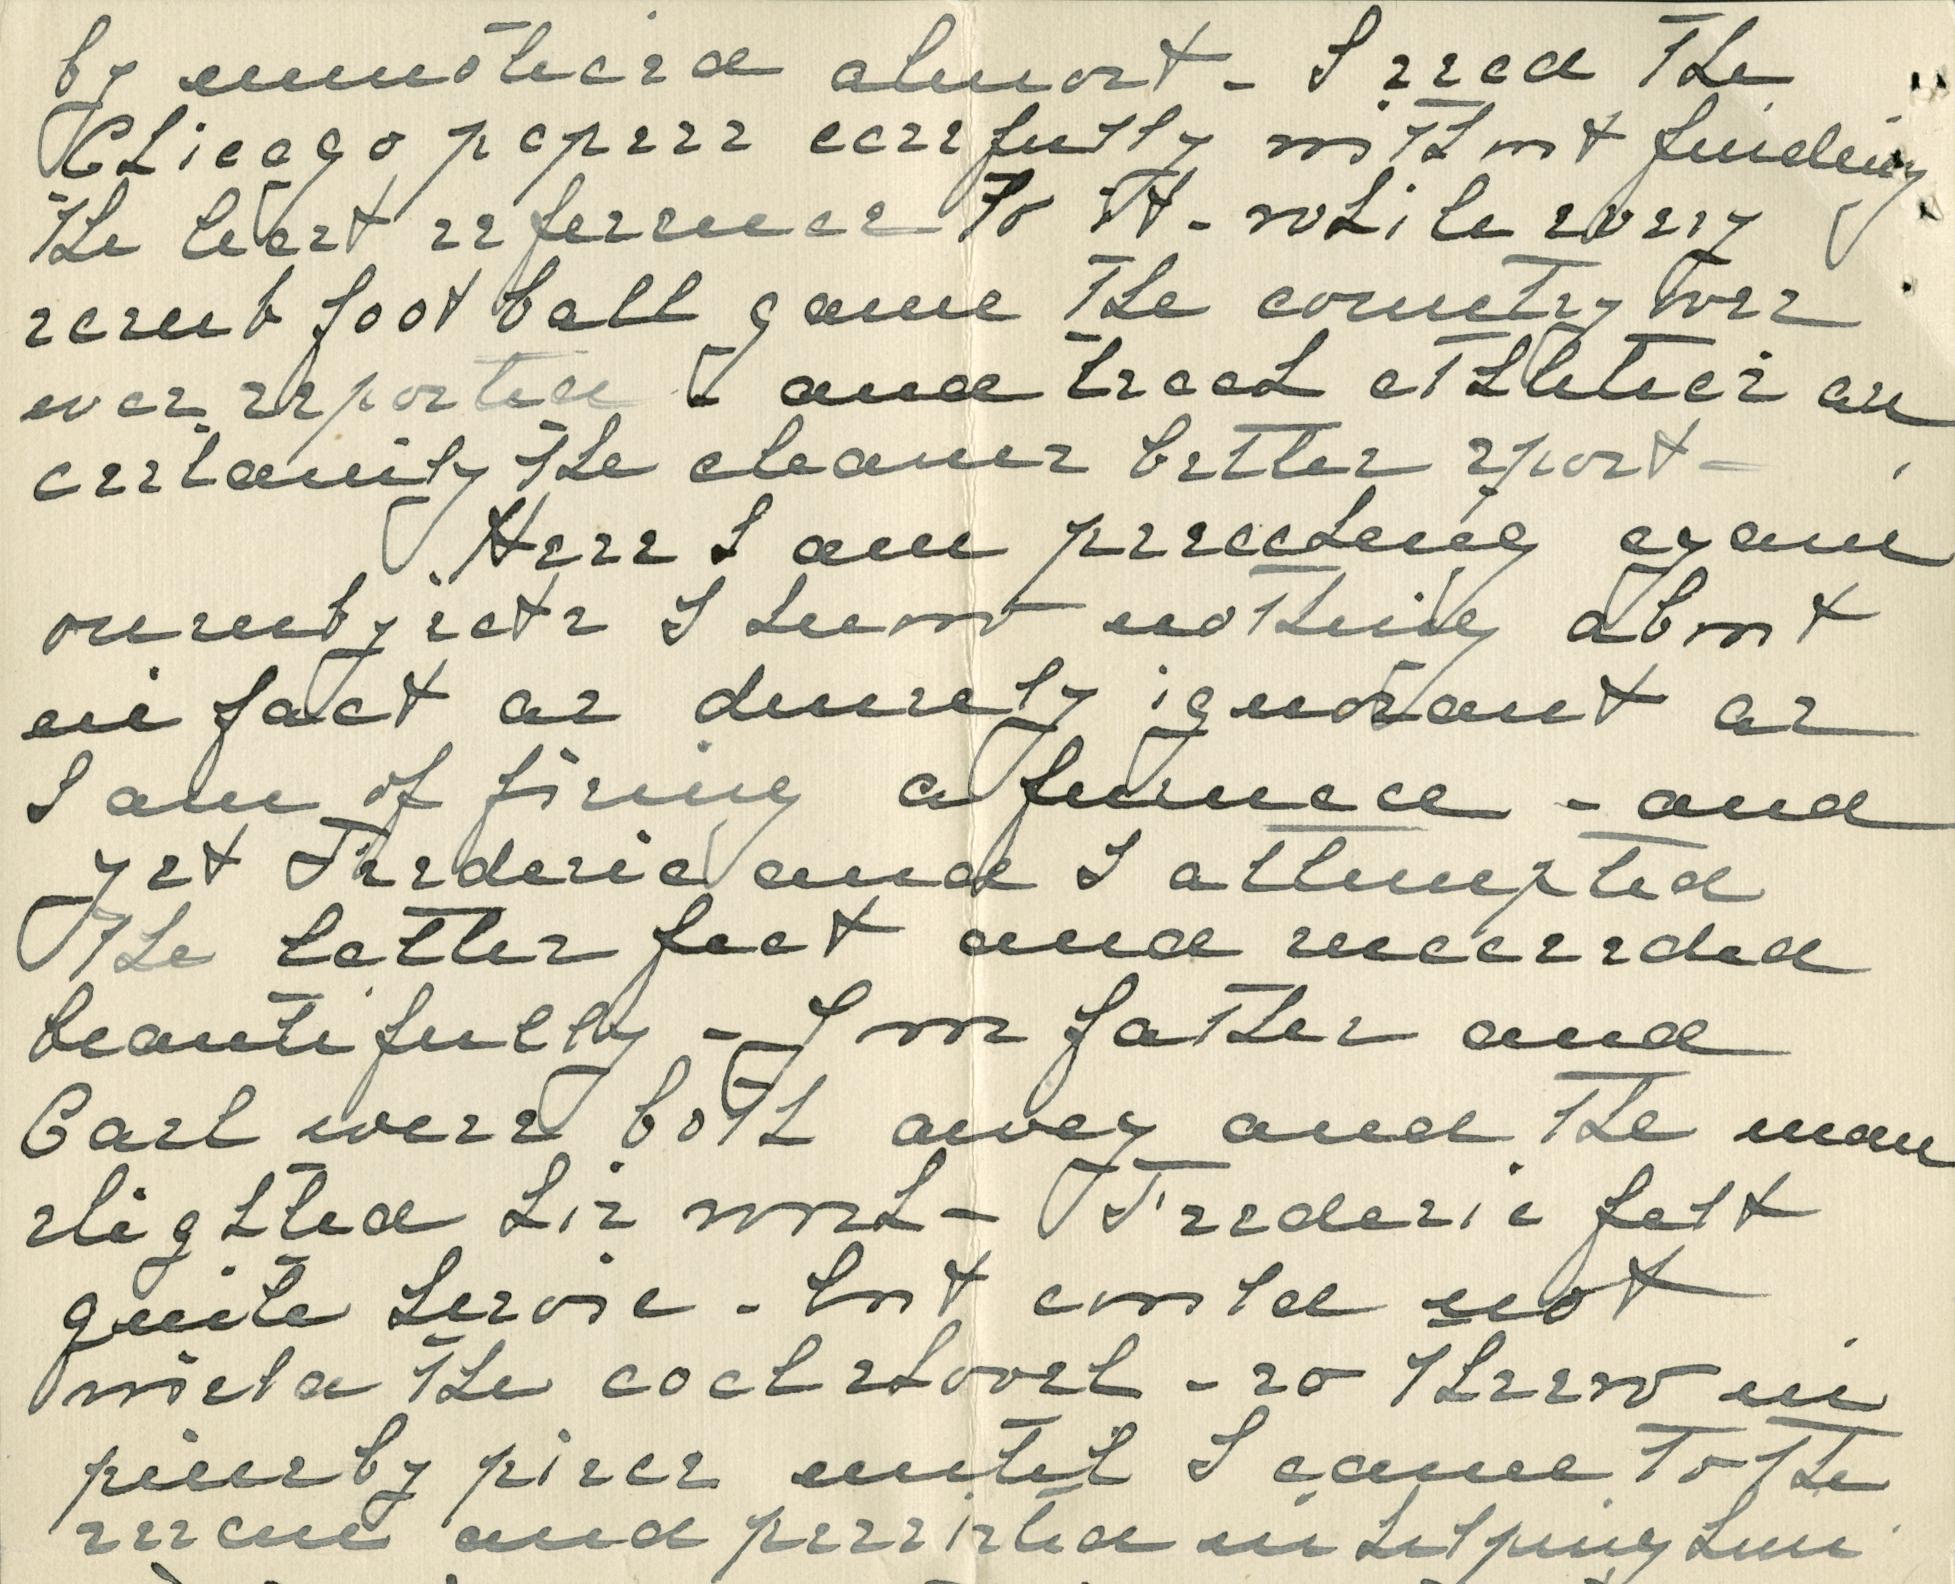 by unnoticed almost - I read the
Chicago papers carefully without finding
the least reference to it - while every
scrub foot ball game the country over
was reported - and track athletics are
certainly the cleaner better sport -
Here I am preaching again
on subjects I know nothing about
in fact as densely ignorant as
I am of firing a furnace - and
yet Frederic and I attempted
the latter feat and succeeded
beautifully - You father and
Carl were both away and the man
slighted his work - Frederic felt
quite heroic - but could not
wield the coal shovel - so threw in
piece by piece until I came to the
rescue and persisted in helping him